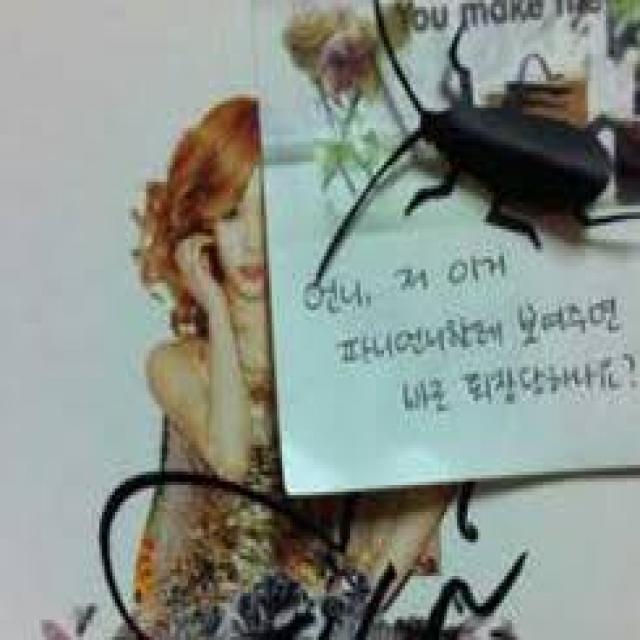 You make me
언니, 저 이거
파니언니한테 보여주면
바로 퇴장당하나요?